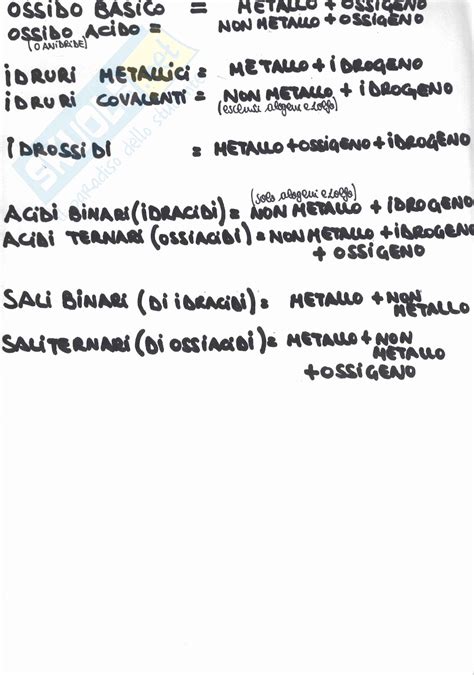 OSSIDO BASICO = METALLO + OSSIGENO
OSSIDO ACIDO = NON METALLO + OSSIGENO
(O ANIDRIDE)
IDRURI METALLICI = METALLO + IDROGENO
IDRURI COVALENTI = NON METALLO + IDROGENO
(esclusi alogeni e zolfo)
IDROSSIDI = METALLO + OSSIGENO + IDROGENO
(solo alogeni e zolfo)
ACIDI BINARI (IDRACIDI) = NON METALLO + IDROGENO
ACIDI TERNARI (OSSIACIDI) = NON METALLO + IDROGENO
+ OSSIGENO
SALI BINARI (DI IDRACIDI) = METALLO + NON
METALLO
SALI TERNARI (DI OSSIACIDI) = METALLO + NON
METALLO
+ OSSIGENO